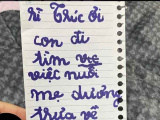 hì Trúc ơi
con đi
tìm vzc
việc nuôi
mẹ dương
thừa về